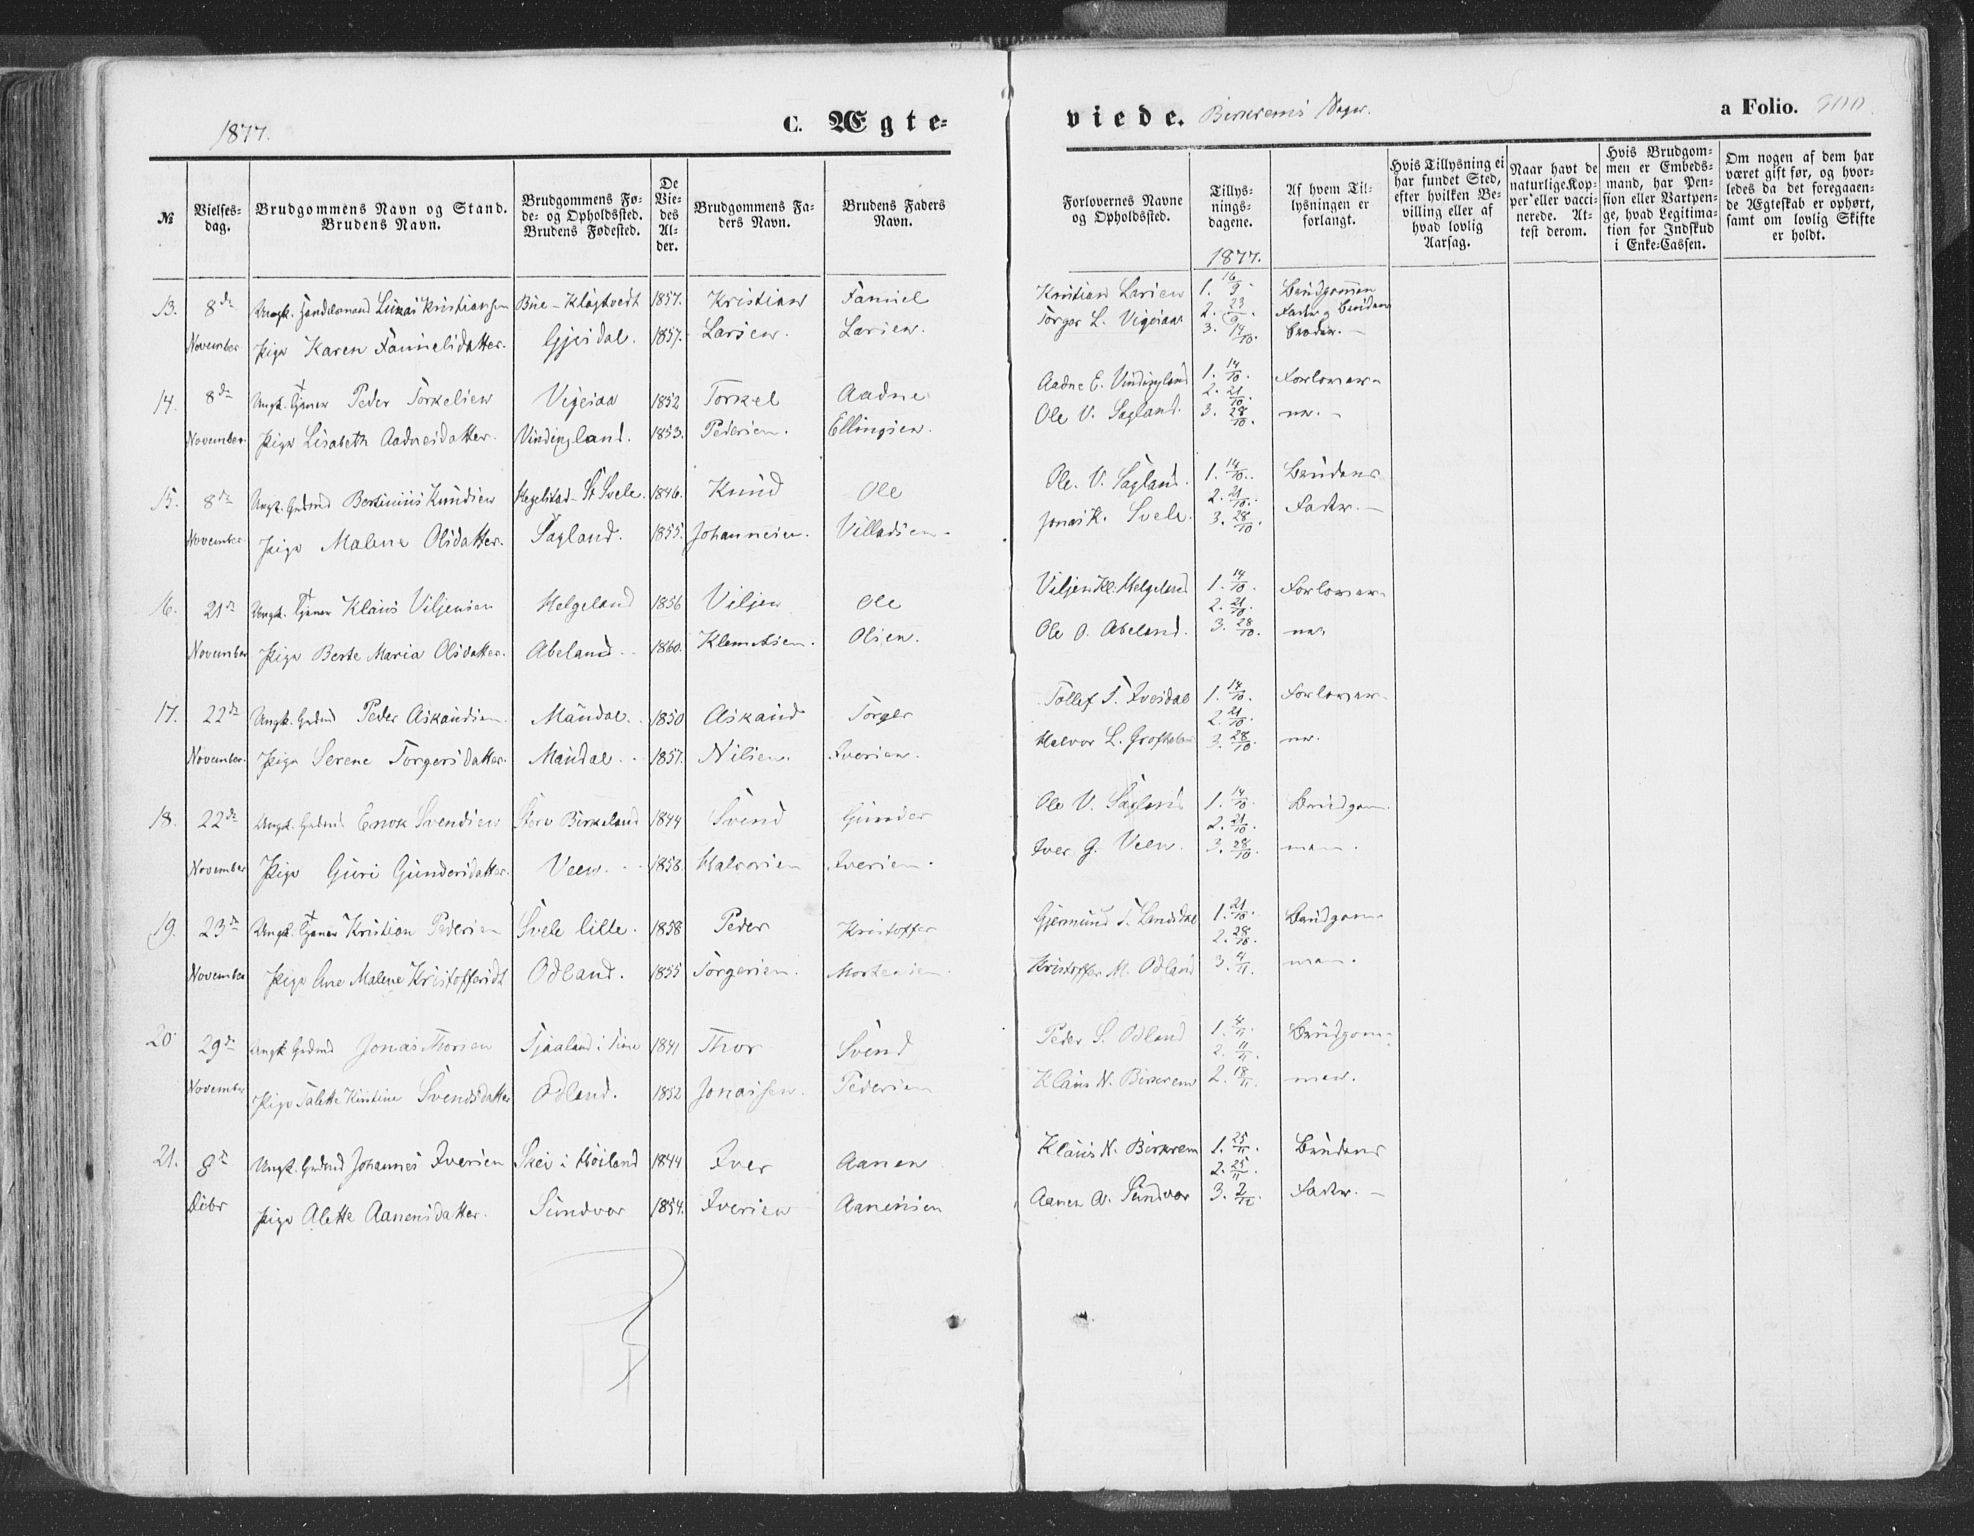 1877.
C. Ægte-
viede. Birkrems Sogn.
a Folio.
№
Vielses-
dag.
Brudgommens Navn og Stand.
Brudens Navn.
Brudgommens Fø-
de- og Opholdssted.
Brudens Fødested.
De
Vie-
des
Al-
der.
Brudgommens Fa-
ders Navn.
Brudens Faders
Navn.
Forlovernes Navne
og Opholdssted.
Tillys-
nings-
dagene.
1877.
Af hvem Til-
lysningen er
forlangt.
Hvis Tillysning ei
har fundet Sted,
efter hvilken Be-
villing eller af
hvad lovlig
Aarsag.
Naar havt de
naturlige Kop-
per eller vacci-
nerede. At-
test derom.
Hvis Brudgom-
men er Embeds-
mand, har Pen-
sion eller Vartpen-
ge, hvad Legitima-
tion for Indskud
i Enke-Cassen.
Om nogen af dem har
været gift før, og hvor-
ledes da det foregaaen-
de Ægteskab er ophørt,
samt om lovlig Skifte
er holdt.
13. 8de Ungk. Handelsmand Lukas Kristiansen Bue - Klogtvedt 1857. Kristian Samuel Kristian Larsen 1. 16/9. Brudgommen
November Pige Karen Samuelsdatter. Gjesdal. 1857. Larsen. Larsen. Torger L. Vigesaa 2. 23/9. Fader og Brudens
3. 14/10. Broder.
14. 8de Ungk. Tjener Peder Torkelsen Vigesaa 1852 Torkel Aadne Aadne E. Vindingland 1. 14/10. Forlover-
2. 21/10.
November. Pige Lisabeth Aadnesdatter. Vindingland. 1853. Pedersen. Ellingsen. Ole V. Sagland. 3. 28/10. ne.
15. 8de Ungk. Grdmd Bertinius Knudsen Hegelstad - St Svele. 1846. Knud Ole Ole. V. Sagland. 1. 14/10. Brudens
2. 21/10.
November Pige Malene Olsdatter. Sagland. 1855. Johannesen. Villadsen. Jonas K. Svele. 3. 28/10. Fader.
16. 21de Ungk. Tjener Klaus Viljensen Helgeland 1856 Viljen Ole Viljen Kl. Helgeland 1. 14/10. Forlover-
2. 21/10.
November Pige Berte Maria Olsdatter. Abeland. 1860. Klemetsen. Olsen. Ole O. Abeland. 3. 28/10. ne.
17. 22de Ungk. Grdmd Peder Askaudsen. Maudal. 1850 Askaud Torger Tollef T. Ivesdal 1. 14/10. Forlover-
2. 21/10.
November. Pige Serene Torgersdatter. Maudal. 1857. Nilsen. Iversen. Halvor L. 3. 28/10. ne.
18. 22de Ungk. Grdmd Enok Svendsen Store Birkeland 1844 Svend Gunder Ole V. Sagland 1. 14/10. Brudgom-
2. 21/10.
November Pige Guri Gundersdatter. Veen. 1856. Halvorsen Iversen. Iver G. Veen. 3. 28/10. men.
19. 23de Ungk. Tjener Kristian Pedersen Svele lille. 1858 Peder Kristoffer Gjermund T. 1. 21/10. Brudgom-
2. 28/10.
November Pige Ane Malene Kristoffersdt Odland. 1855 Torgersen. Mortensen. Kristoffer M. Odland 3. 4/11. men.
20 29de Ungk Grdmd Jonas Thorsen Tjaaland i Time 1841 Thor Svend Peder S. Odland 1. 4/11. Brudgom-
2. 11/11.
November Pige Talette Kirstine Svendsdatter Odland. 1852 Jonassen. Pedersen Klaus N. Birkrem 2. 18/11. men.
21. 8de Ungk. Grdmd Johannes Iversen Skei i Höiland 1844 Iver Aanen Klaus N. Birkrem 1. 25/11. Brudens
2. 25/11.
Debr Pige Alette Aanensdatter. Sundvor 1854. Iversen Aanensen Aanen A. Sundvor 3. 2/12. Fader.